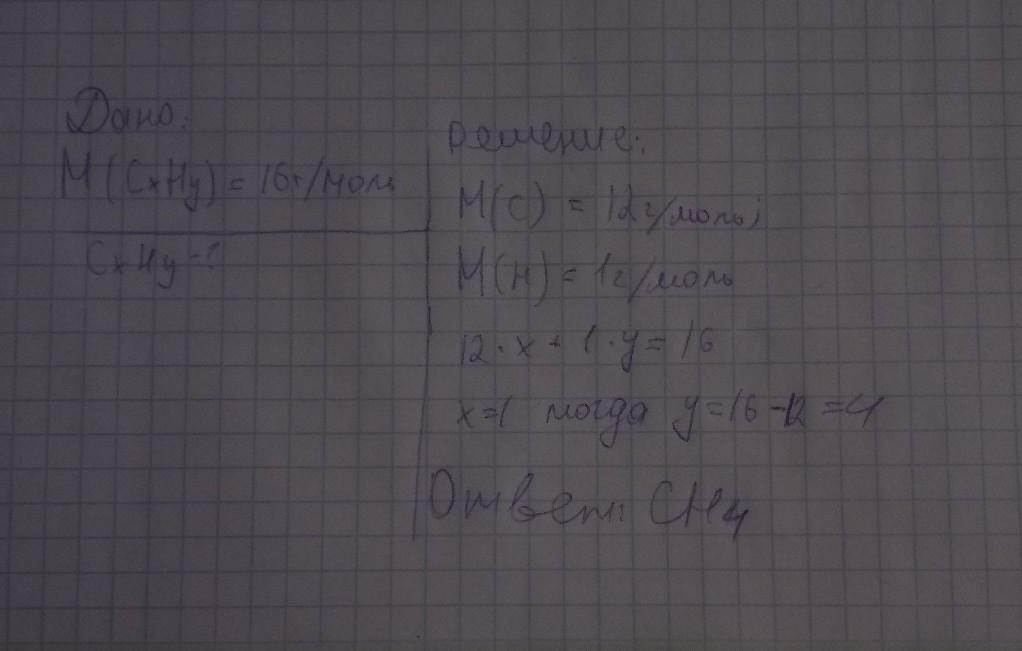 Дано:
M(CxHy) = 16г/моль
CxHy-?
решение:
M(C) = 12г/моль;
M(H) = 1г/моль
12·x + 1·y = 16
x=1 тогда y=16-12=4
Ответ: CH4